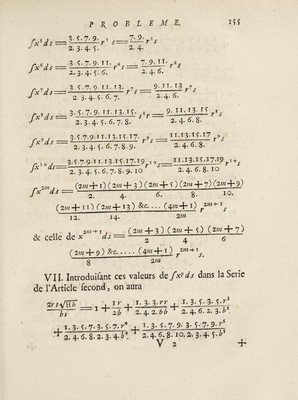 PROBLEME. 155
∫x⁵ds = 3.5.7.9./2.3.4.5. r⁵s = 7.9./2.4. r⁵s
∫x⁶ds = 3.5.7.9.11./2.3.4.5.6. r⁶s = 7.9.11./2.4.6. r⁶s
∫x⁷ds = 3.5.7.9.11.13./2.3.4.5.6.7. r⁷s = 9.11.13/2.4.6. r⁷s
∫x⁸ds = 3.5.7.9.11.13.15./2.3.4.5.6.7.8. r⁸s = 9.11.13.15/2.4.6.8. r⁸s
∫x⁹ds = 3.5.7.9.11.13.15.17./2.3.4.5.6.7.8.9. r⁹s = 11.13.15.17/2.4.6.8. r⁹s
∫x¹⁰ds = 3.5.7.9.11.13.15.17.19/2.3.4.5.6.7.8.9.10 r¹⁰s = 11.13.15.17.19/2.4.6.8.10 r¹⁰s
∫x²ᵐds = (2m+1)(2m+3)(2m+5)(2m+7)(2m+9)/2. 4. 6. 8. 10.
(2m+11)(2m+13) &c.... (4m+1)/12. 14. 2m
& celle de x²ᵐ⁺¹ds = (2m+3)(2m+5)(2m+7)/2 4 6
(2m+9) &c..... (4m+1)/8 2m r²ᵐ⁺¹s.
VII. Introduisant ces valeurs de ∫xᵖds dans la Serie
de l'Article second, on aura
= 1 + 1r/2b + 1.3.3rr/2.4.2bb + 1.3.5.3.5.r³/2.4.6.2.3b³
+ 1.3.5.7.3.5.7.r⁴/2.4.6.8.2.3.4b⁴ + 1.3.5.7.9.3.5.7.9.r⁵/2.4.6.8.10.2.3.4.5.b⁵
V 2 +